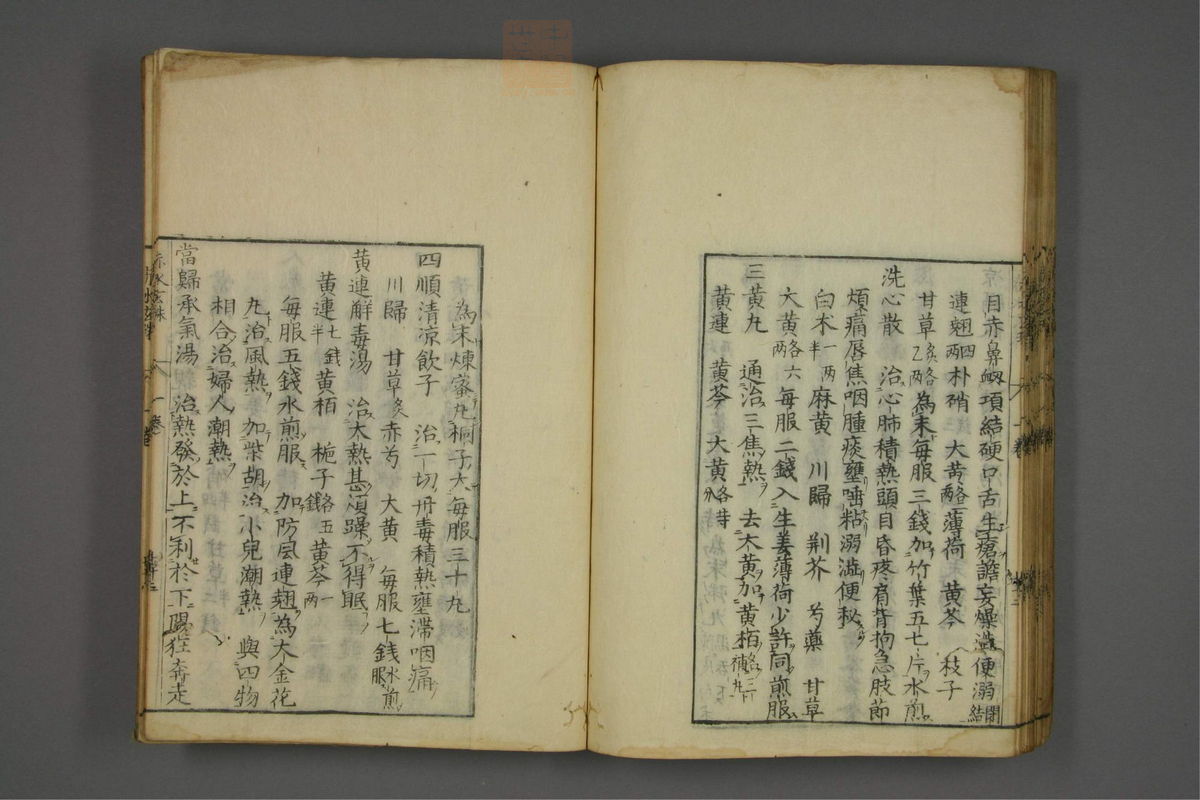 目赤鼻衂項結硬口舌生瘡譫妄燥澁便溺閉結
連翹四两朴硝 大黄各二两薄荷 黄芩 枝子
甘草炙各乙两為末毎服三錢加竹葉五七片水煎
洗心散 治心肺積熱頭目昏疼肩背拘急肢節
煩痛唇焦咽腫痰壅唾粘溺澁便秘
白朮一两半麻黄 川歸 荆芥 芍藥 甘草
大黄各六两毎服二錢入生姜薄荷少許同煎服
三黄丸 通治三焦熱 去大黄加黄栢
黄連 黄芩 大黄各等分
為末煉蜜丸桐子大毎服三十丸
四順清凉飲子 治一切丹毒積熱壅滞咽痛
川歸 甘草炙赤芍 大黄 毎服七錢水煎服
黄連解毒湯 治大熱甚煩躁不得眠
黄連七錢半黄栢 梔子各五錢黄芩一两
毎服五錢水煎服 加防風連翹為大金花
丸治風熱 加柴胡治小兒潮熱 與四物
相合治婦人潮熱
當歸承氣湯 治熱發於上不利於下陽狂奔走